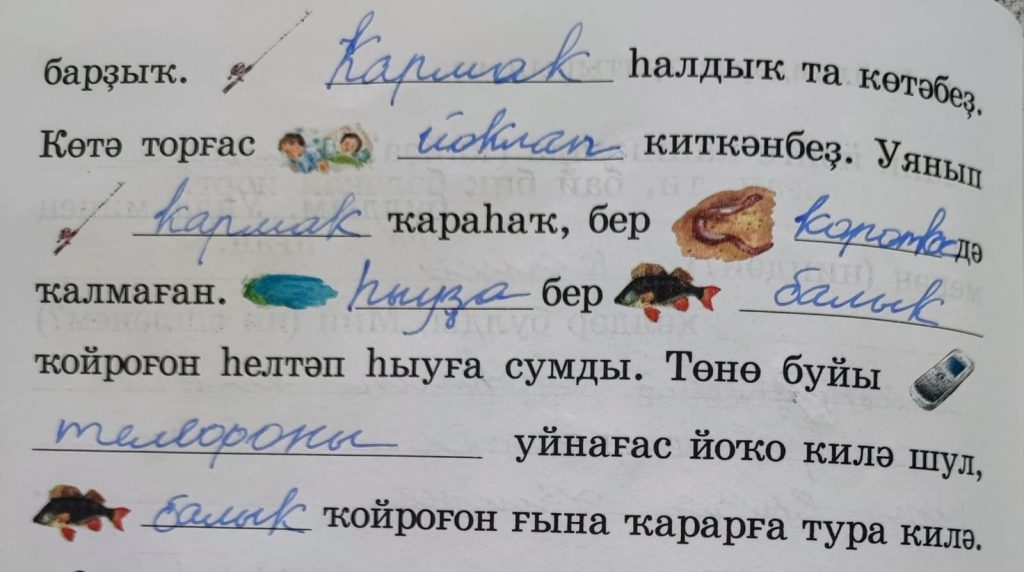 барҙыҡ. Ҡармак һалдыҡ та көтәбеҙ.
Көтә торғас йоклап киткәнбеҙ. Уянып
кармак ҡараһаҡ, бер дә
ҡалмаған. һыуҙа бер балык
ҡойроғон һелтәп һыуға сумды. Төнө буйы
уйнағас йоҡо килә шул,
балык ҡойроғон ғына ҡарарға тура килә.